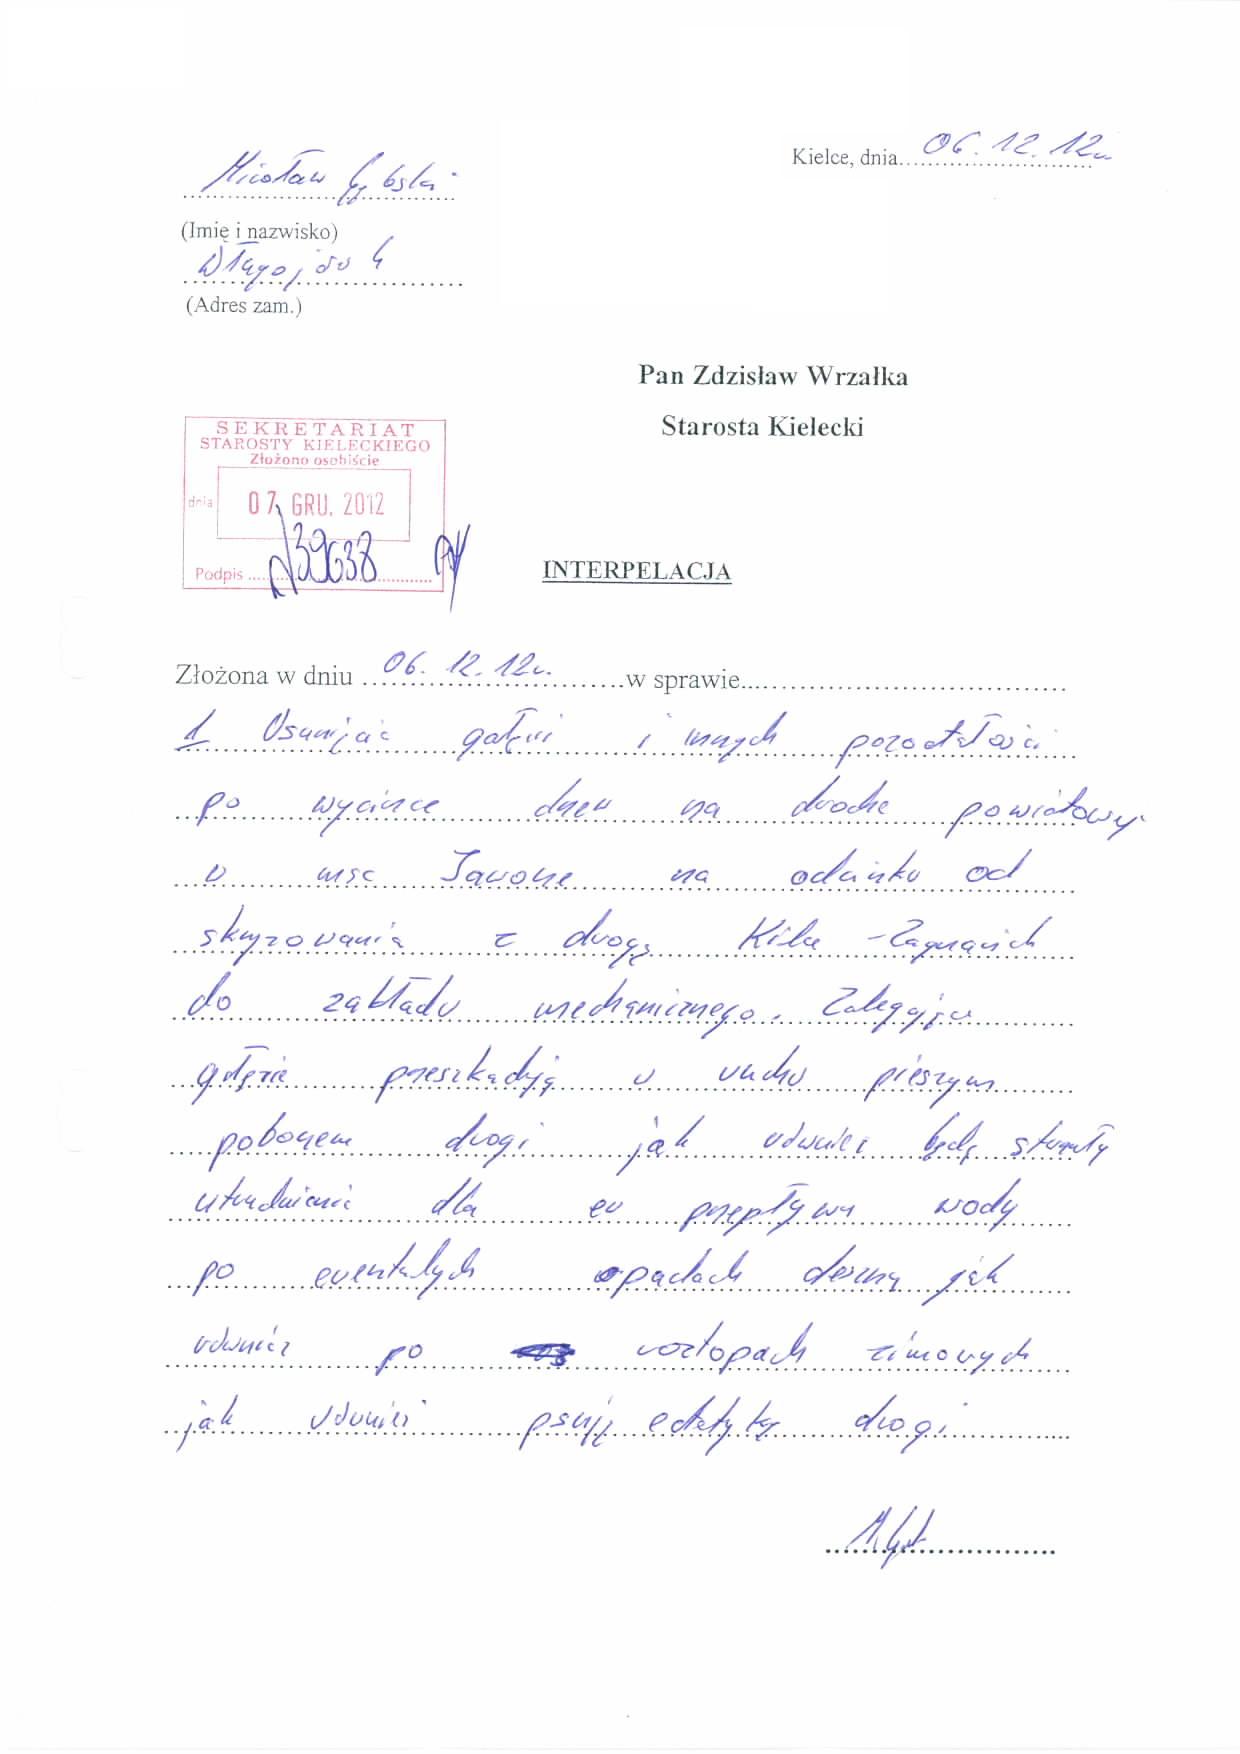 Kielce, dnia 06.12.12r
Mirosław Gębski
(Imię i nazwisko)
(Adres zam.)
Pan Zdzisław Wrzałka
Starosta Kielecki
SEKRETARIAT
STAROSTY KIELECKIEGO
Złożono osobiście
dnia 07. GRU. 2012
39638
Podpis
INTERPELACJA
Złożona w dniu 06.12.12r. w sprawie
1 Usunięcie gałęzi i innych pozostałości
po wycince drzew na drodze powiatowej
w msc Jaworze na odcinku od
skrzyżowania z drogą Kielce - Zagnańsk
do zakładu mechanicznego. Zalegające
gałęzie przeszkadzają w ruchu pieszym
poboczem drogi jak również będą stwarzały
utrudnienia dla przepływu wody
po eventalych opadach deszczu jak
również po roztopach zimowych
jak również psują estetykę drogi